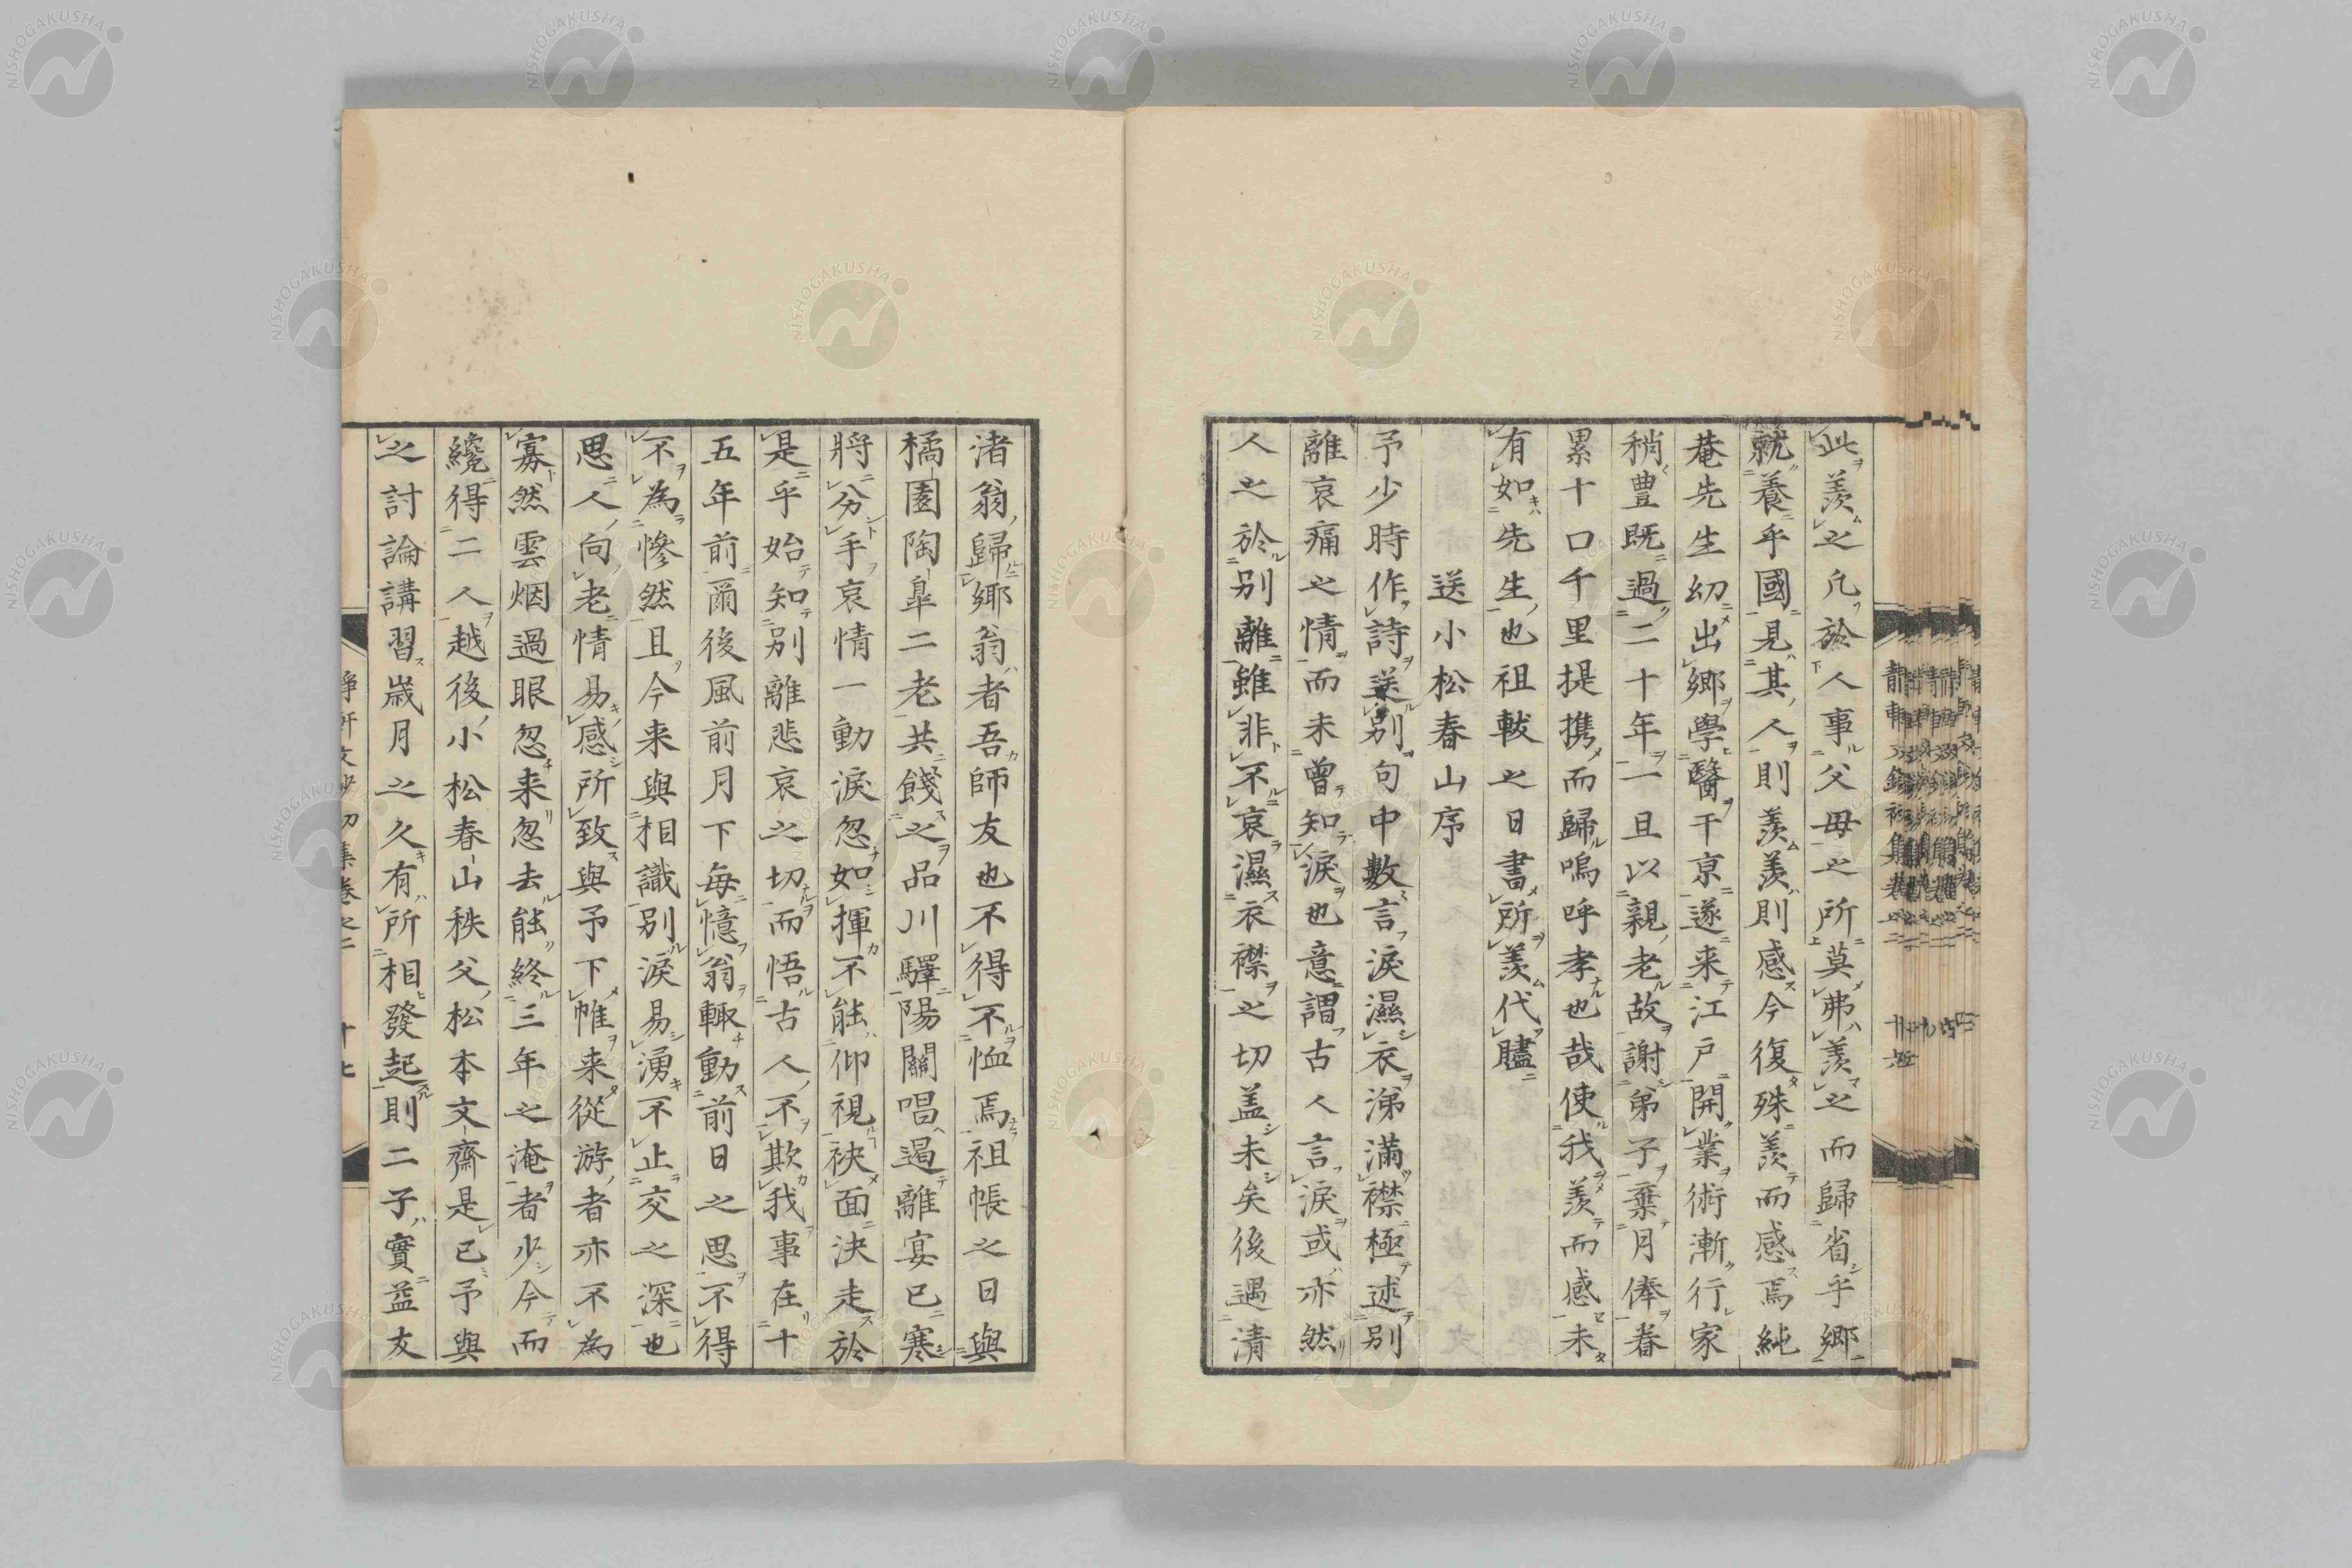 此羨之凢於人事父母之所莫弗羨之而歸省乎鄉
就養乎國見其人則羨羨則感今復殊羨而感焉純
菴先生幼出鄉學醫于京遂来江戸開業術漸行家
稍豊既過二十年一旦以親老故謝弟子棄月俸眷
累十口千里提携而歸嗚呼孝也哉使我羨而感未
有如先生也祖軷之日書所羨代贐
送小松春山序
予少時作詩送別句中數言淚濕衣涕滿襟極述別
離哀痛之情而未曾知淚也意謂古人言淚或亦然
人之於別離雖非不哀濕衣襟之切盖未矣後遇清
渚翁歸鄉翁者吾師友也不得不恤焉祖帳之日與
橘園陶皐二老共餞之品川驛陽關唱過離宴已寒
將分手哀情一動淚忽如揮不能仰視袂面決走於
是乎始知別離悲哀之切而悟古人不欺我事在十
五年前爾後風前月下每憶翁輙動前日之思不得
不為慘然且今来與相識別淚易湧不止交之深也
思人向老情易感所致與予下帷来從游者亦不為
寡然雲烟過眼忽来忽去能終三年之淹者少今而
纔得二人越後小松春山秩父松本文齋是已予與
之討論講習歳月之久有所相發起則二子實益友